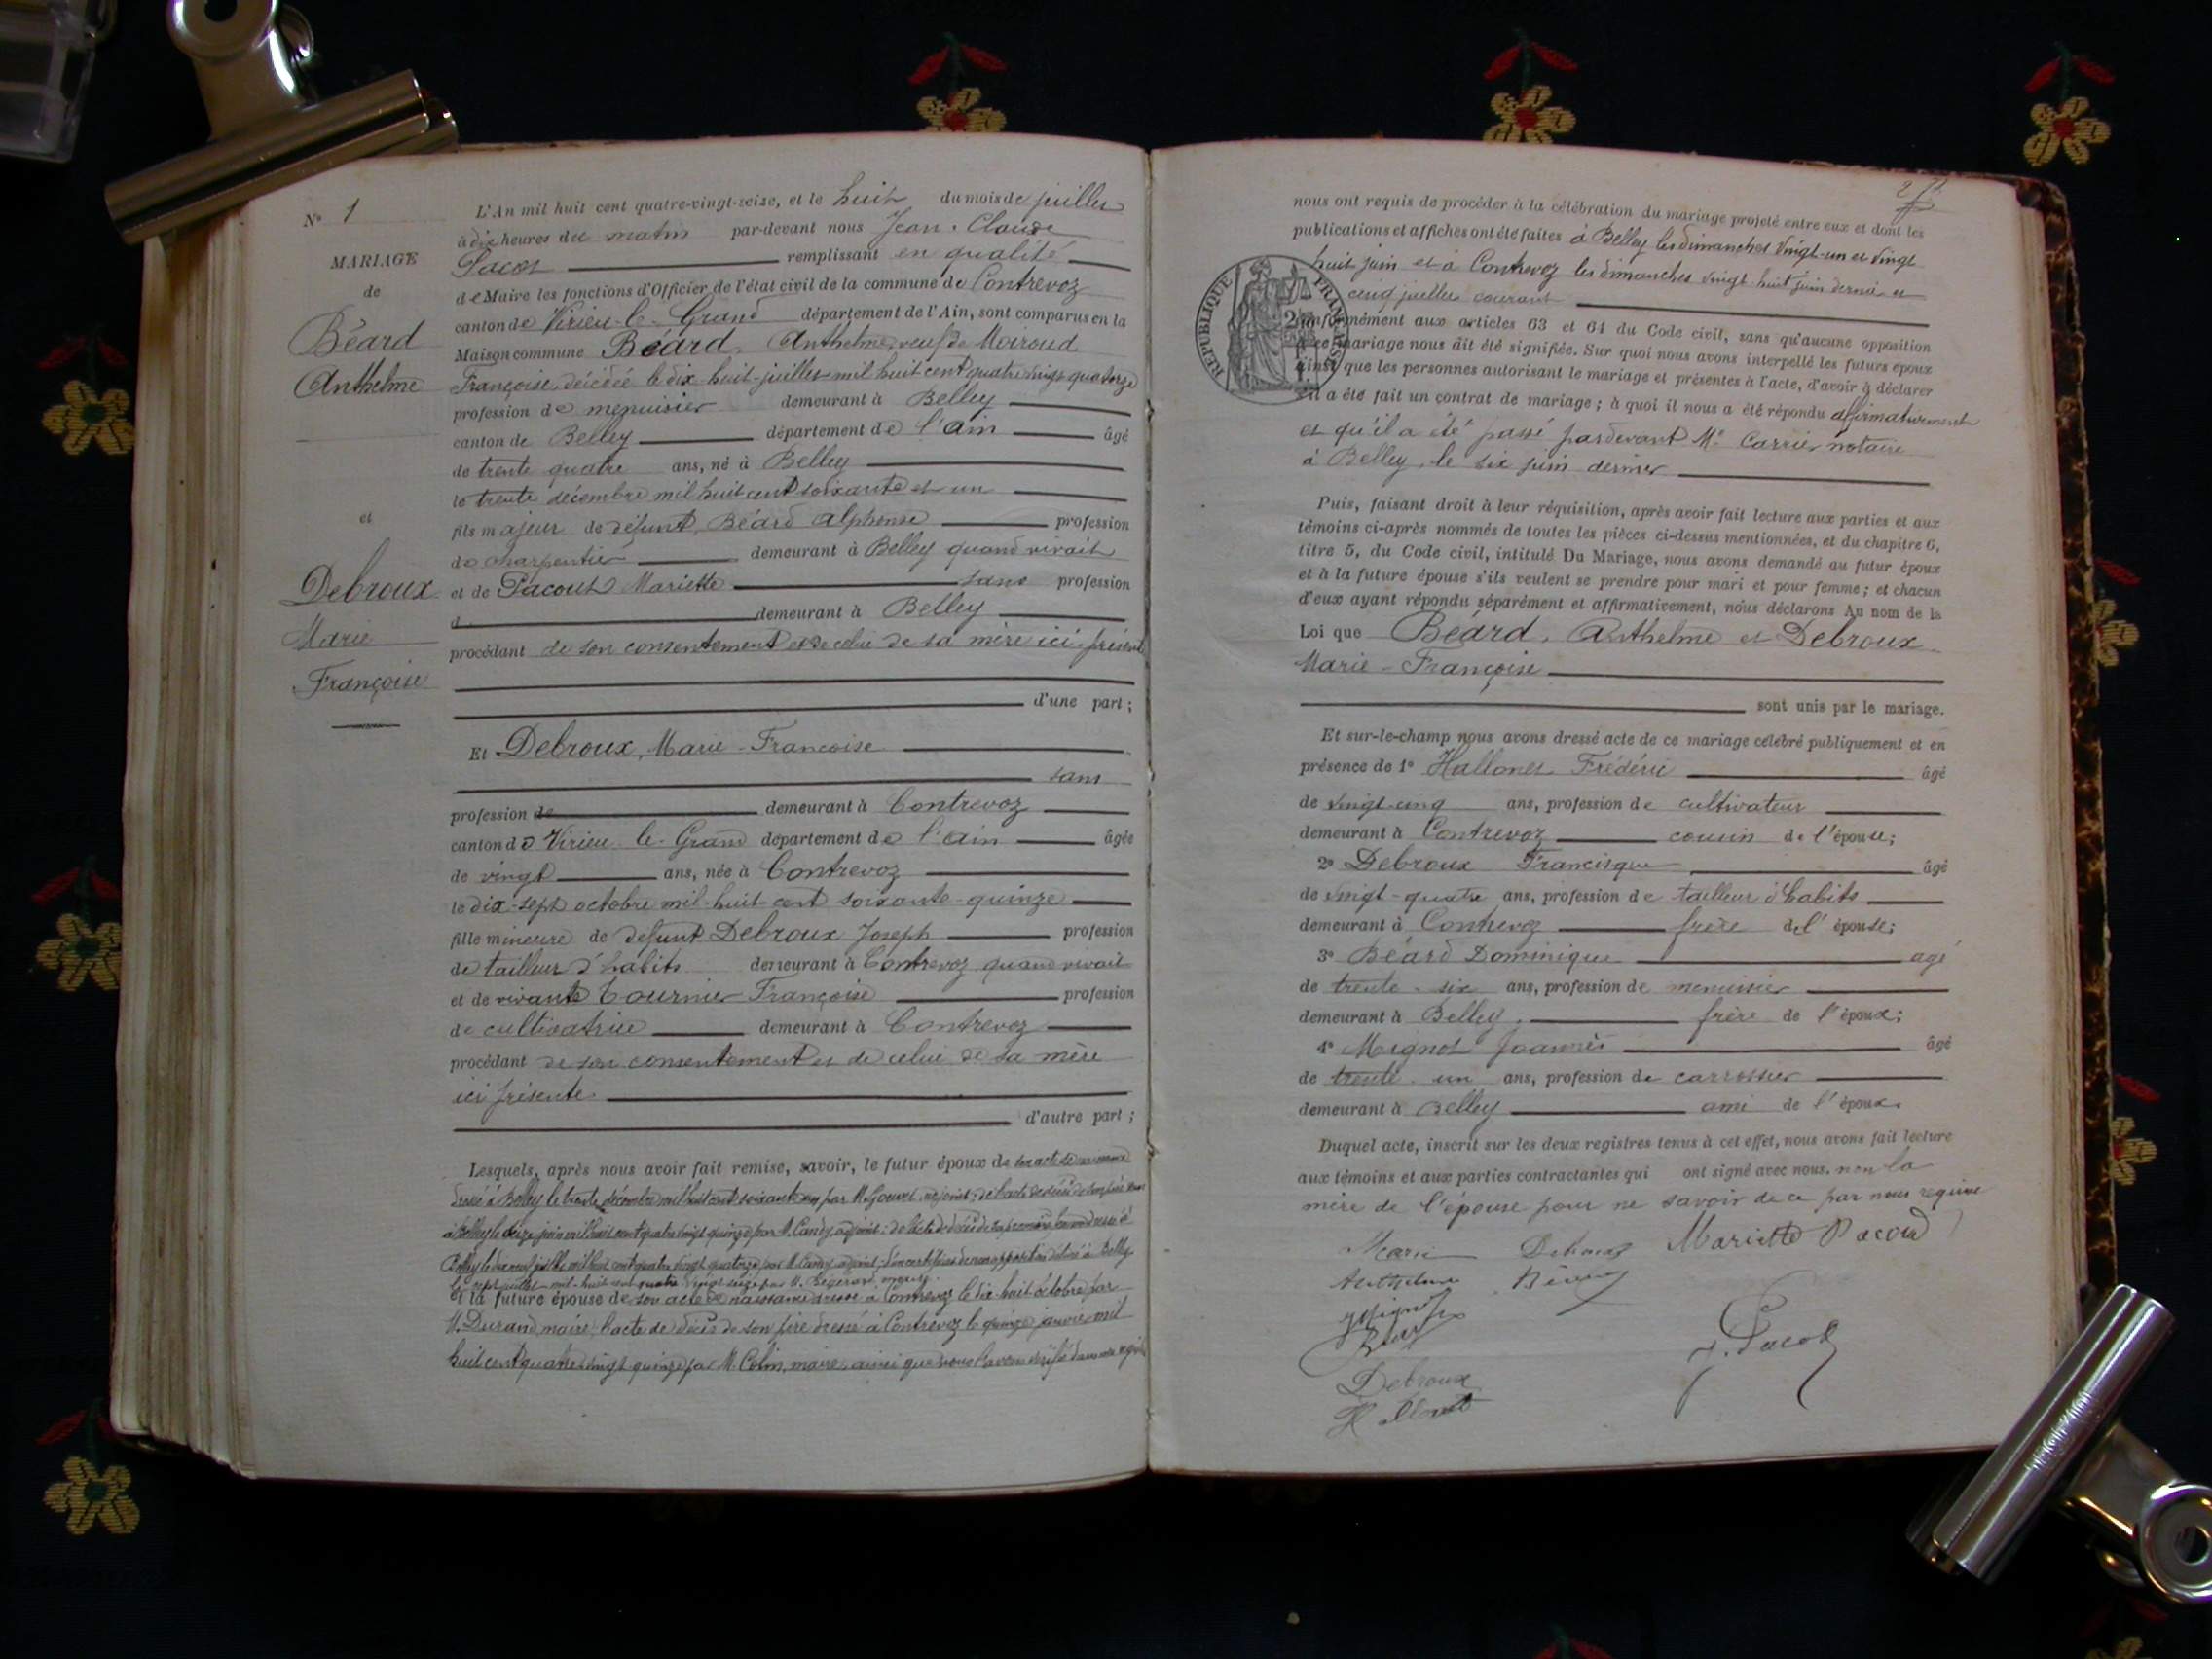 N° 1
MARIAGE
de
Béard
Anthelme
et
Debroux
Marie
Françoise
L'An mil huit cent quatre-vingt-seize, et le huit du mois de juillet
à dix heures du matin par-devant nous Jean-Claude
Pacot remplissant en qualité
de Maire les fonctions d'Officier de l'état civil de la commune de Contrevoz
canton de Virieu-le-Grand département de l'Ain, sont comparus en la
Maison commune Béard, Anthelme veuf de Moiroud
Françoise décédée le dix-huit juillet mil huit cent quatre vingt quatorze
profession de menuisier demeurant à Belley
canton de Belley département de l'ain âgé
de trente quatre ans, né à Belley
le trente décembre mil huit cent soixante et un
fils majeur de défunt Béard alphonse profession
de charpentier demeurant à Belley quand vivait
et de Pacoud Mariette sans profession
d demeurant à Belley
procédant de son consentement et de celui de sa mère ici présente
d'une part ;
Et Debroux, Marie-Françoise
sans
profession de demeurant à Contrevoz
canton de Virieu le-Grand département de l'ain âgée
de vingt ans, née à Contrevoz
le dix-sept octobre mil-huit-cent soixante-quinze
fille mineure de défunt Debroux Joseph profession
de tailleur d'habits demeurant à Contrevoz quand vivait
et de vivante Tournier Françoise profession
de cultivatrice demeurant à Contrevoz
procédant de son consentement et de celui de sa mère
ici présente.
d'autre part ;
Lesquels, après nous avoir fait remise, savoir, le futur époux de son acte de naissance
dressé à Belley le trente décembre mil huit cent soixante un par M. Gouvet adjoint ; de l'acte de décès de son père
à Belley le juin mil huit cent quatre vingt quinze par M. Candy, adjoint ; de l'acte de décès de sa première femme dressé à
Belley le dix neuf juillet mil huit cent quatre vingt quatorze par M. Candy adjoint ; d'un certificat de non opposition délivré à Belley
le sept juillet mil-huit-cent quatre vingt seize par M. maire.
Et la future épouse de son acte de naissance dressé à Contrevoz le dix-huit octobre par
M. Durand, maire, l'acte de décès de son père dressé à Contrevoz le quinze janvier mil
huit cent quatre vingt quinze par M. Colin, maire, ainsi que nous l'avons vérifié dans nos registres
nous ont requis de procéder à la célébration du mariage projeté entre eux et dont les
publications et affiches ont été faites à Belley les dimanches vingt-un et vingt
huit juin et à Contrevoz les dimanches vingt huit juin dernier et
cinq juillet courant
REPUBLIQUE FRANÇAISE
conformément aux articles 63 et 64 du Code civil, sans qu'aucune opposition
à ce mariage nous ait été signifiée. Sur quoi nous avons interpellé les futurs époux
ainsi que les personnes autorisant le mariage et présentes à l'acte, d'avoir à déclarer
s'il a été fait un contrat de mariage ; à quoi il nous a été répondu affirmativement
et qu'il a été passé pardevant Me Carrier notaire
à Belley, le six juin dernier
Puis, faisant droit à leur réquisition, après avoir fait lecture aux parties et aux
témoins ci-après nommés de toutes les pièces ci-dessus mentionnées, et du chapitre 6,
titre 5, du Code civil, intitulé Du Mariage, nous avons demandé au futur époux
et à la future épouse s'ils veulent se prendre pour mari et pour femme ; et chacun
d'eux ayant répondu séparément et affirmativement, nous déclarons Au nom de la
Loi que Béard, Anthelme et Debroux
Marie-Françoise
sont unis par le mariage.
Et sur-le-champ nous avons dressé acte de ce mariage célébré publiquement et en
présence de 1° Hallonet Frédéric âgé
de vingt-cinq ans, profession de cultivateur
demeurant à Contrevoz cousin de l'épouse;
2° Debroux Francisque âgé
de vingt-quatre ans, profession de tailleur d'habits
demeurant à Contrevoz frère de l'épouse;
3° Béard Dominique agé
de trente-six ans, profession de menuisier
demeurant à Belley, frère de l'époux;
4° Mignot Joannès âgé
de trente-un ans, profession de carrossier
demeurant à Belley ami de l'époux.
Duquel acte, inscrit sur les deux registres tenus à cet effet, nous avons fait lecture
aux témoins et aux parties contractantes qui ont signé avec nous. non la
mère de l'épouse pour ne savoir de ce par nous requise
Marie Debroux Mariette Pacoud
Anthelme Béard
JMignot
Béard
J. Pacot
Debroux
Hallonet